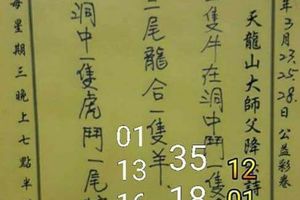 年3月23.25.28日公益彩卷
天龍山大師父降詩
隻牛在洞中鬥一隻
尾龍合一隻羊
洞中一隻虎鬥一尾
每星期三晚上七點半
01
13
35
18
12
01